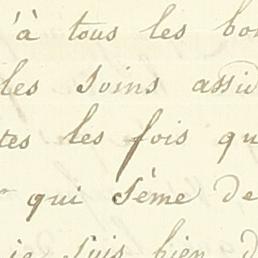 'à tous les bon
les soins assid
tes les fois qu
qui sème de
je suis bien d